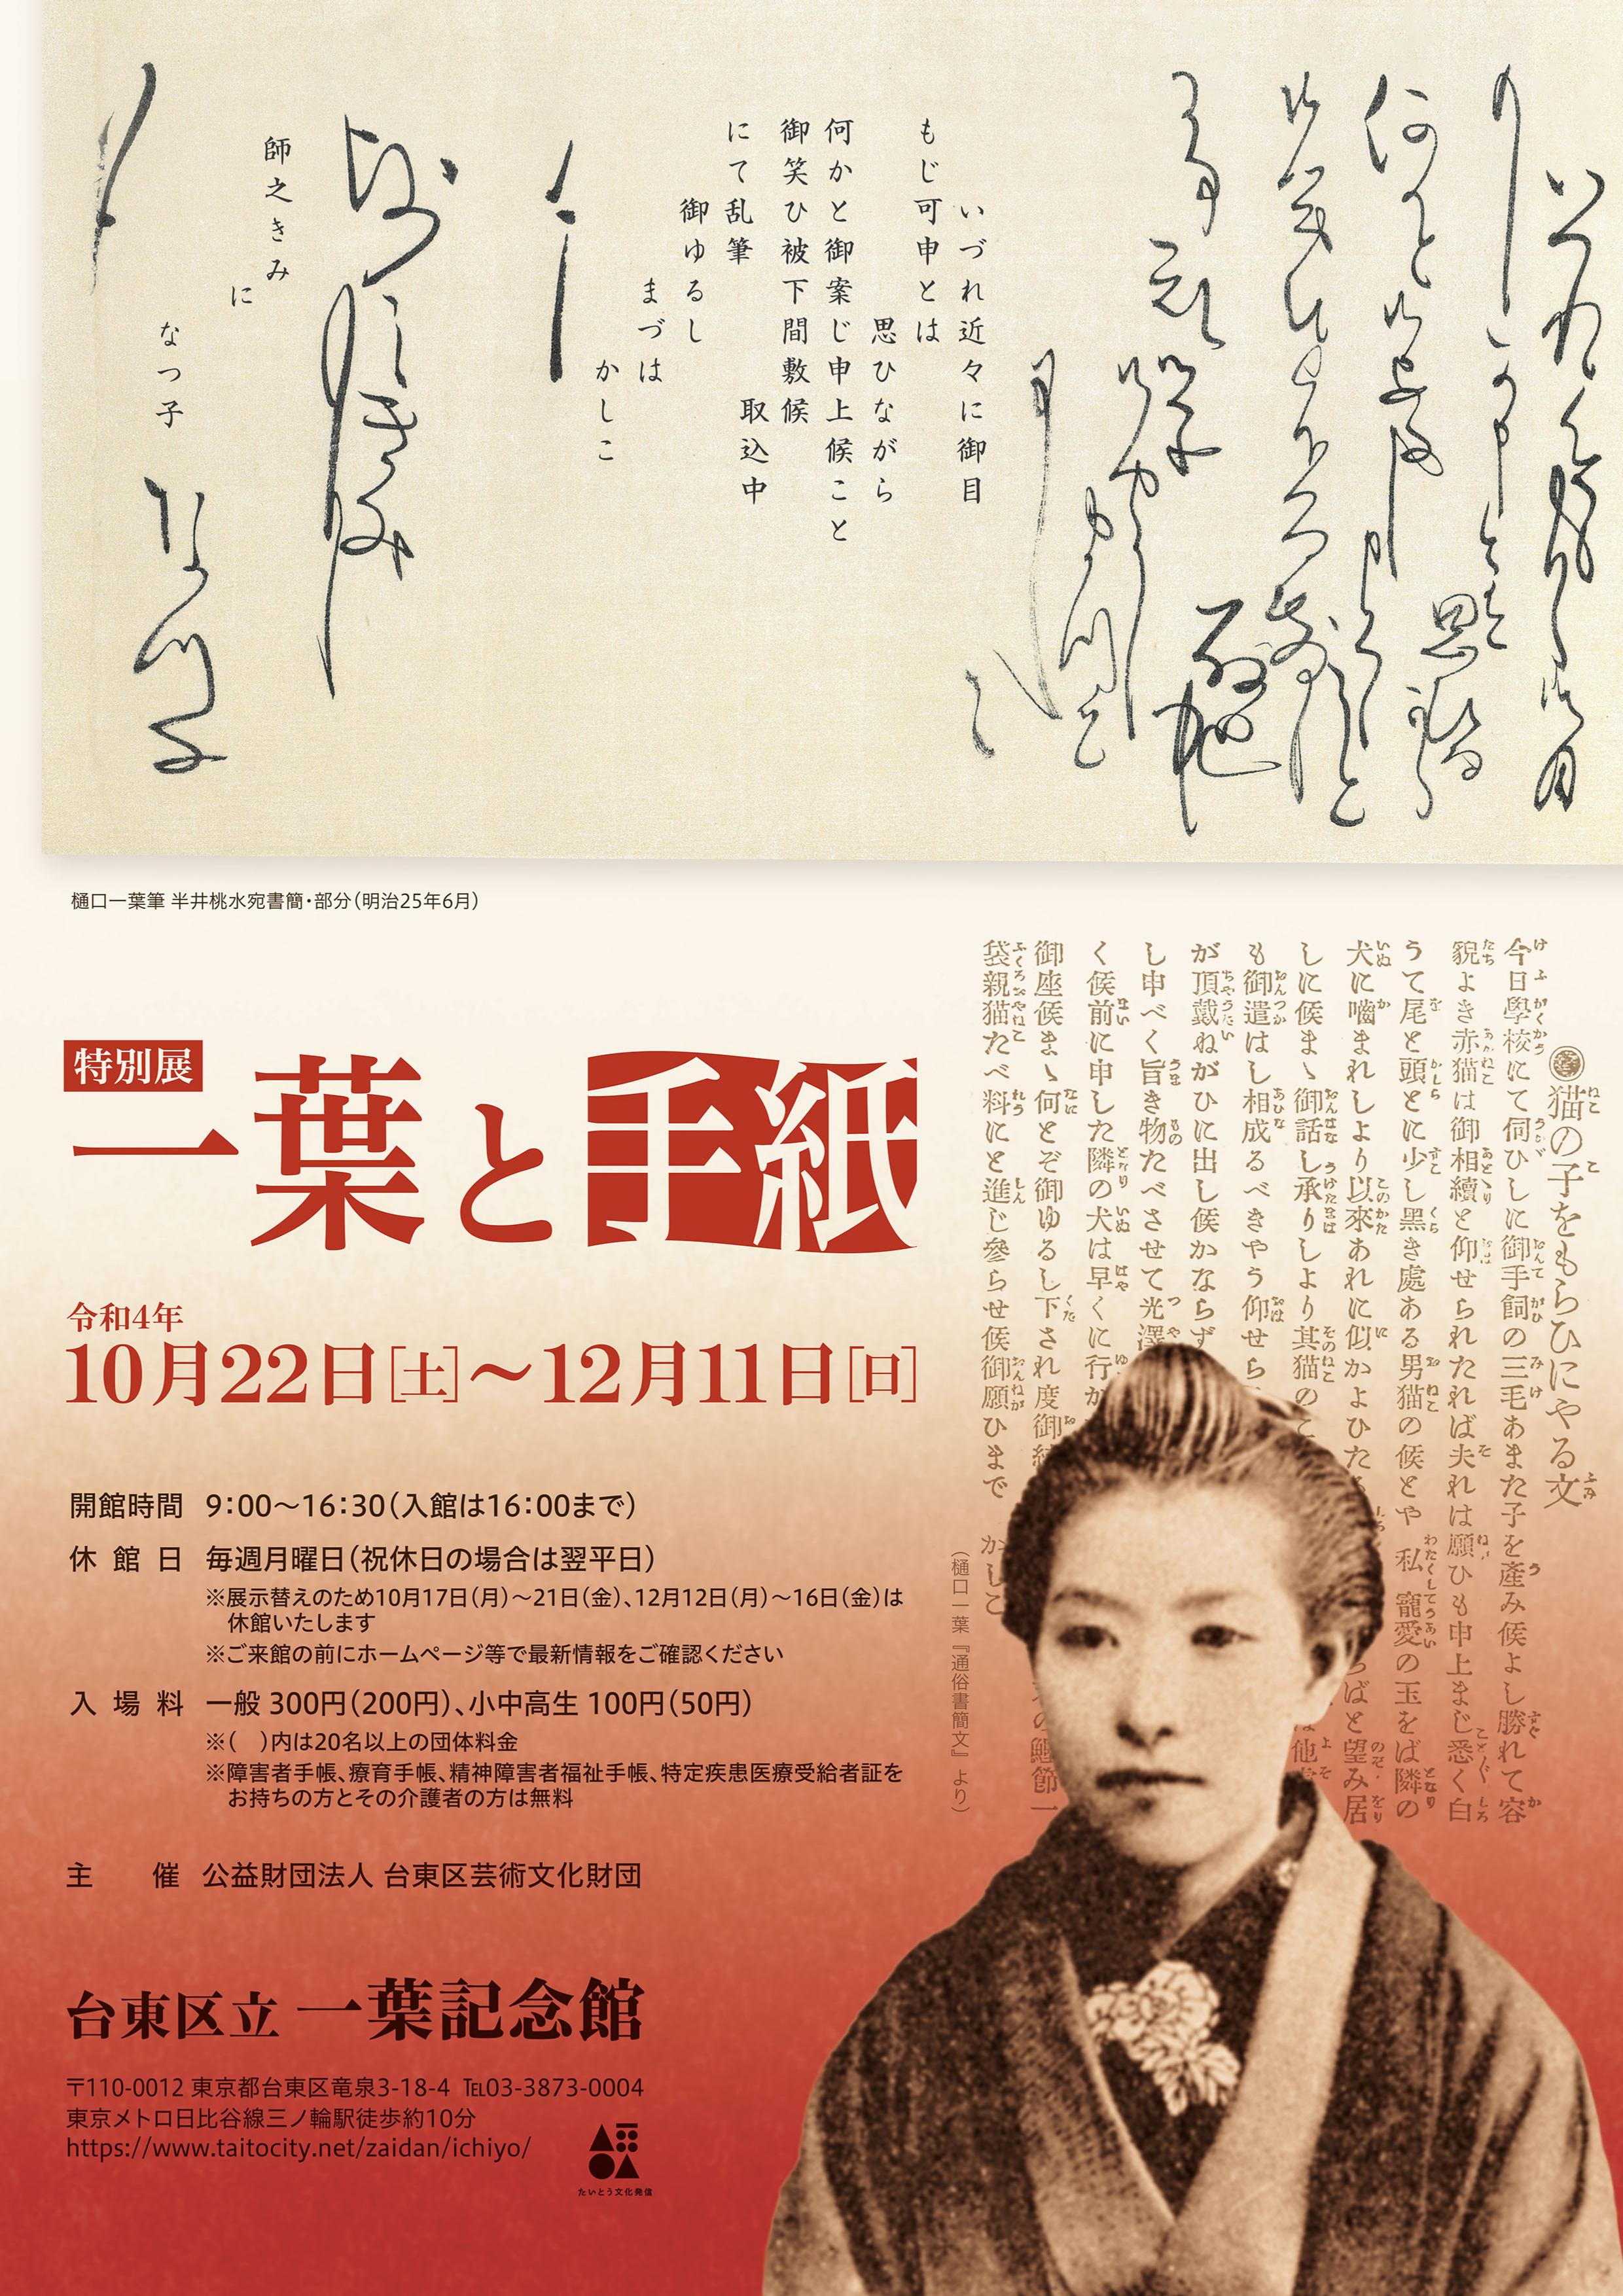 いづれ近々に御目
もじ可申とは
思ひながら
何かと御案じ申上候こと
御笑ひ被下間敷候
取込中
にて乱筆
御ゆるし
まづは
かしこ
師之きみ
に
なつ子
樋口一葉筆 半井桃水宛書簡・部分（明治25年6月）
特別展
一葉と手紙
令和4年
10月22日[土]～12月11日[日]
開館時間 9：00～16：30（入館は16：00まで）
休館日 毎週月曜日（祝休日の場合は翌平日）
※展示替えのため10月17日（月）～21日（金）、12月12日（月）～16日（金）は
休館いたします
※ご来館の前にホームページ等で最新情報をご確認ください
入場料 一般 300円（200円）、小中高生 100円（50円）
※（　）内は20名以上の団体料金
※障害者手帳、療育手帳、精神障害者福祉手帳、特定疾患医療受給者証を
お持ちの方とその介護者の方は無料
主催 公益財団法人 台東区芸術文化財団
台東区立 一葉記念館
〒110-0012 東京都台東区竜泉3-18-4 ℡03-3873-0004
東京メトロ日比谷線三ノ輪駅徒歩約10分
https://www.taitocity.net/zaidan/ichiyo/
たいとう文化発信
猫の子をもらひにやる文
今日學校にて伺ひしに御手飼の三毛あまた子を産み候よし勝れて容
貌よき赤猫は御相續と仰せられたれば夫れは願ひも申上まじ悉く白
うて尾と頭とに少し黒き處ある男猫の候とや私寵愛の玉をば隣の
犬に嚙まれしより以來あれに似かよひた
ばと望み居
しに候まゝ御話し承りしより其猫のこ
他
も御遣はし相成るべきやう仰せら
が頂戴ねがひに出し候かならず
し申べく旨き物たべさせて光澤
く候前に申した隣の犬は早くに行か
御座候まゝ何とぞ御ゆるし下され度御
の鰹節一
袋親猫たべ料にと進じ參らせ候御願ひまで
かしこ
（樋口一葉『通俗書簡文』より）